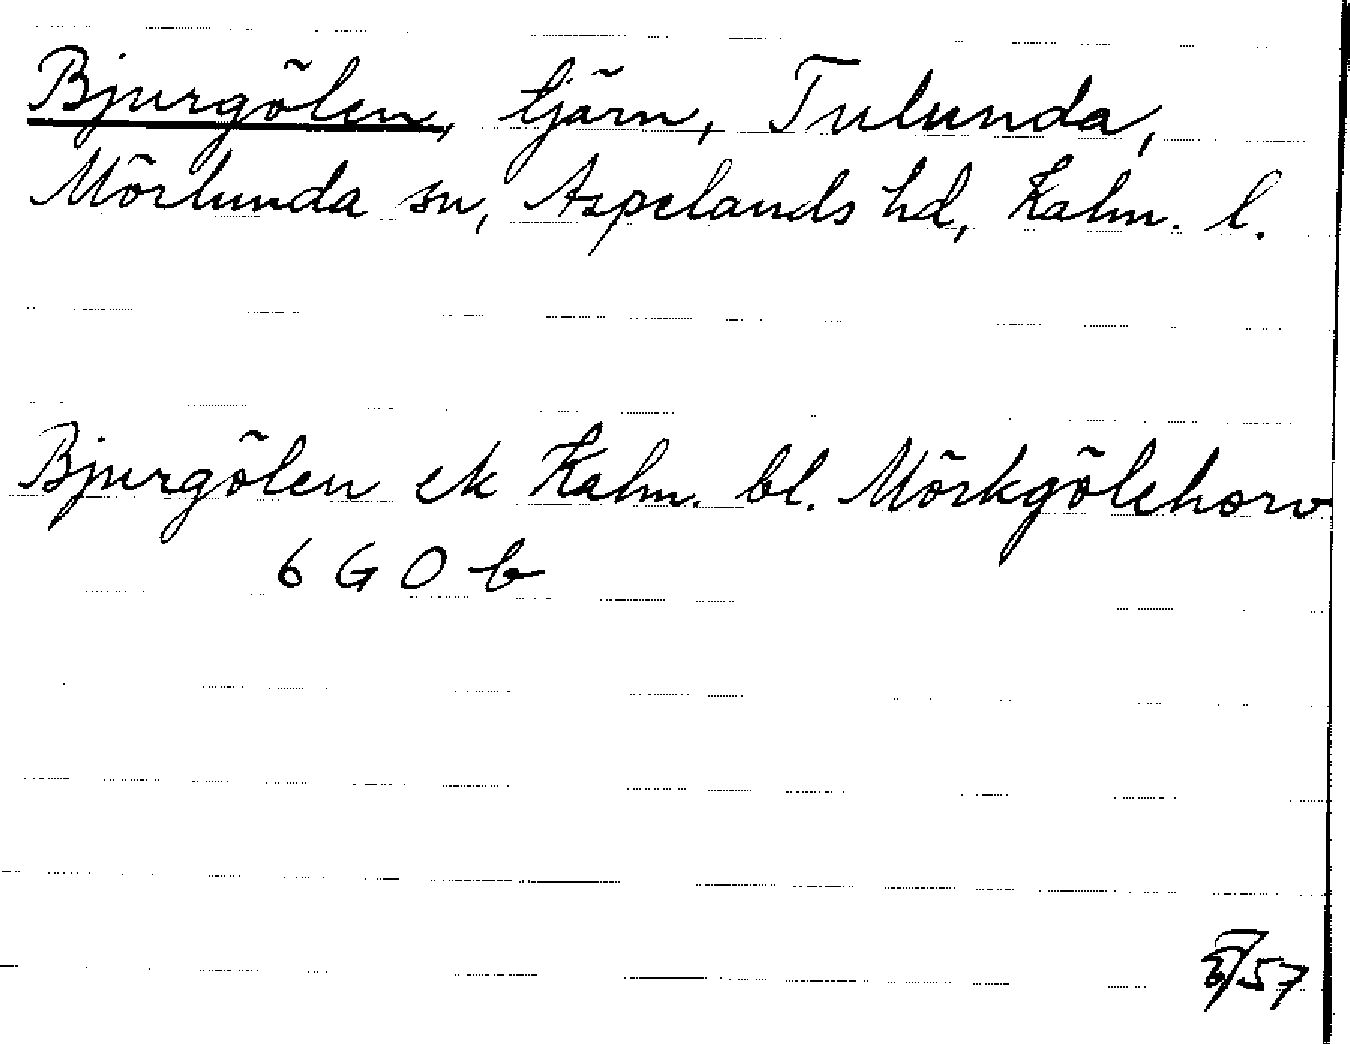 Bjurgölen, tjärn, Tulunda,
Mörlunda sn, Aspelands hd, Kalm. l.
Bjurgölen ek Kalm. bl. Mörkgölehorv
6 G O b
57